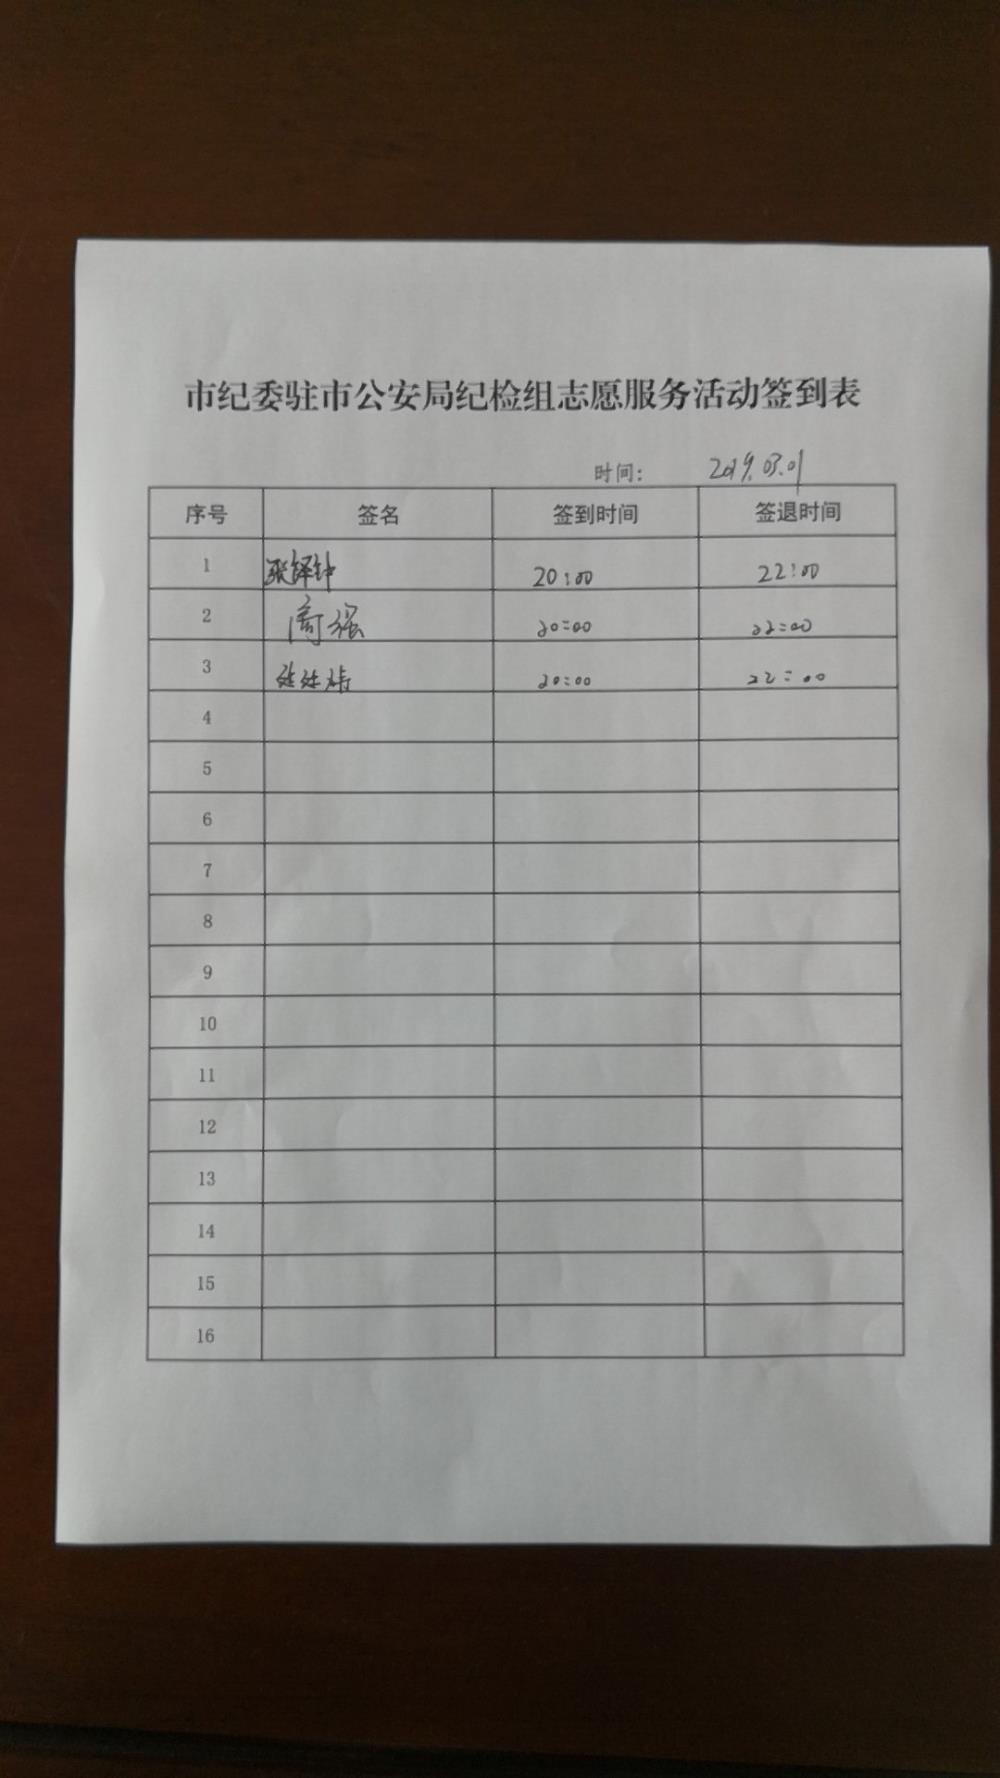 市纪委驻市公安局纪检组志愿服务活动签到表
时间: 2019.03.01
序号 签名 签到时间 签退时间
1 张铎钟 20:00 22:00
2 商强 20:00 22:00
3 20:00 22:00
4
5
6
7
8
9
10
11
12
13
14
15
16